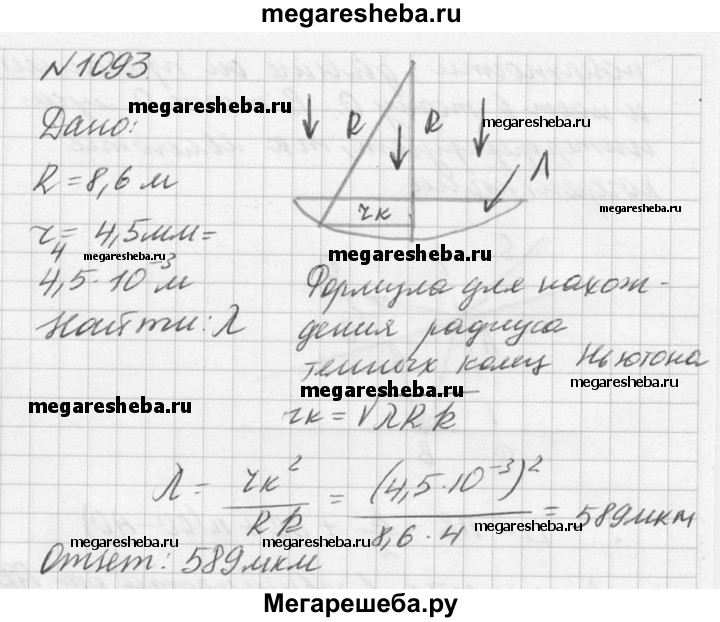 megaresheba.ru
N1093
megaresheba.ru
Дано:
R R
megaresheba.ru
R = 8,6 м
Л
rк
megaresheba.ru
r4 = 4,5мм =
megaresheba.ru
megaresheba.ru
4,5·10⁻³ м
Найти: λ
Формула для нахож-
дения радиуса
темных колец Ньютона
megaresheba.ru
megaresheba.ru
megaresheba.ru
rк = √λRk
λ = rк²/Rk = (4,5·10⁻³)²/8,6·4 = 589мкм
megaresheba.ru
megaresheba.ru
megaresheba.ru
Ответ: 589мкм
Мегарешеба.ру